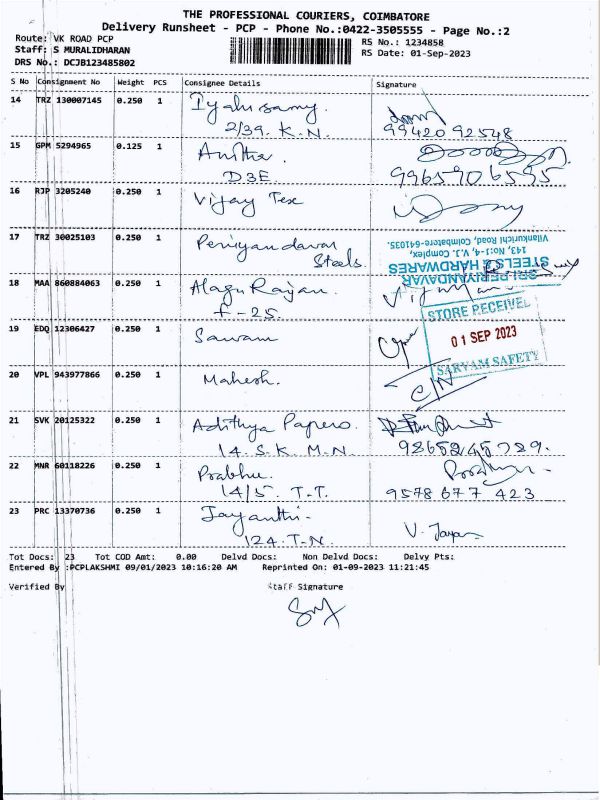 THE PROFESSIONAL COURIERS, COIMBATORE
Delivery Runsheet - PCP - Phone No.:0422-3505555 - Page No.:2
Route: VK ROAD PCP
RS No.: 1234858
Staff: S MURALIDHARAN
RS Date: 01-Sep-2023
DRS No.: DCJB123485802
S No Consignment No Weight PCS Consignee Details Signature
14 TRZ 130007145 0.250 1
2/39. K.N. 99420 92548
15 GPM 5294965 0.125 1 Anitha.
D3E. 9965906595
16 RJP 3205240 0.250 1 Vijay Tex
17 TRZ 30025103 0.250 1 Periyandavar
Steels.
SRI PERIYANDAVAR
STEELS HARDWARES
143, No:1-4, V.J. Complex,
Vilankurichi Road, Coimbatore-641035.
18 MAA 860884063 0.250 1 Alagu Rajan.
F-25.
STORE RECEIVED
01 SEP 2023
SARYAM SAFETY
19 EDQ 12306427 0.250 1 Sawan
20 VPL 943977866 0.250 1 Mahesh.
21 SVK 20125322 0.250 1 Adithya Papers.
14. S.K. M.N. 9865245789.
22 MNR 60118226 0.250 1 Prabhu.
14/5. T.T. 9578 677 423
23 PRC 13370736 0.250 1 Jayanthi.
124. T.N. V. Jaya
Tot Docs: 23 Tot COD Amt: 0.00 Delvd Docs: Non Delvd Docs: Delvy Pts:
Entered By :PCPLAKSHMI 09/01/2023 10:16:20 AM Reprinted On: 01-09-2023 11:21:45
Verified By Staff Signature